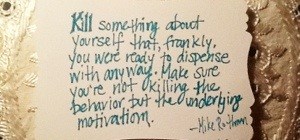 Kill something about
yourself that, frankly,
you were ready to dispense
with anyway. Make sure
you're not killing the
behavior, but the underlying
motivation.
—Mike Rothman